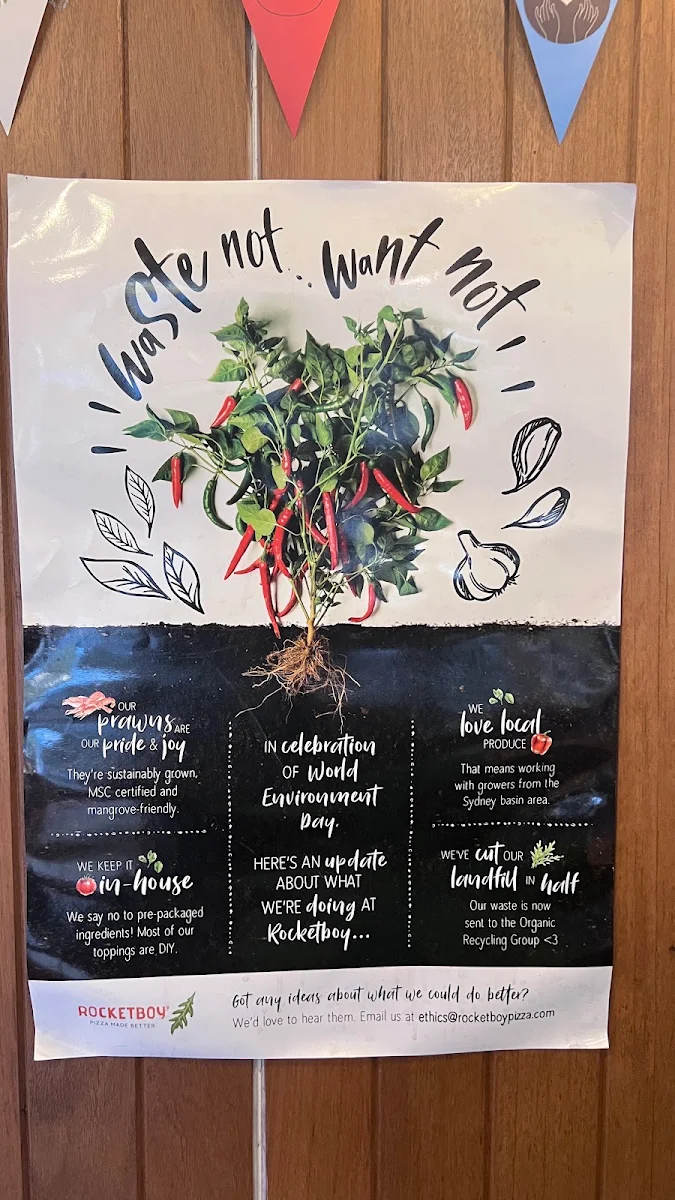 waste not... want not
OUR
prawns ARE
OUR pride & joy
They're sustainably grown,
MSC certified and
mangrove-friendly.
WE KEEP IT
in-house
We say no to pre-packaged
ingredients! Most of our
toppings are DIY.
IN celebration
OF World
Environment
Day.
HERE'S AN update
ABOUT WHAT
WE'RE doing AT
Rocketboy...
WE
love local
PRODUCE
That means working
with growers from the
Sydney basin area.
WE'VE cut OUR
landfill IN half
Our waste is now
sent to the Organic
Recycling Group <3
ROCKETBOY
PIZZA MADE BETTER
Got any ideas about what we could do better?
We'd love to hear them. Email us at ethics@rocketboypizza.com